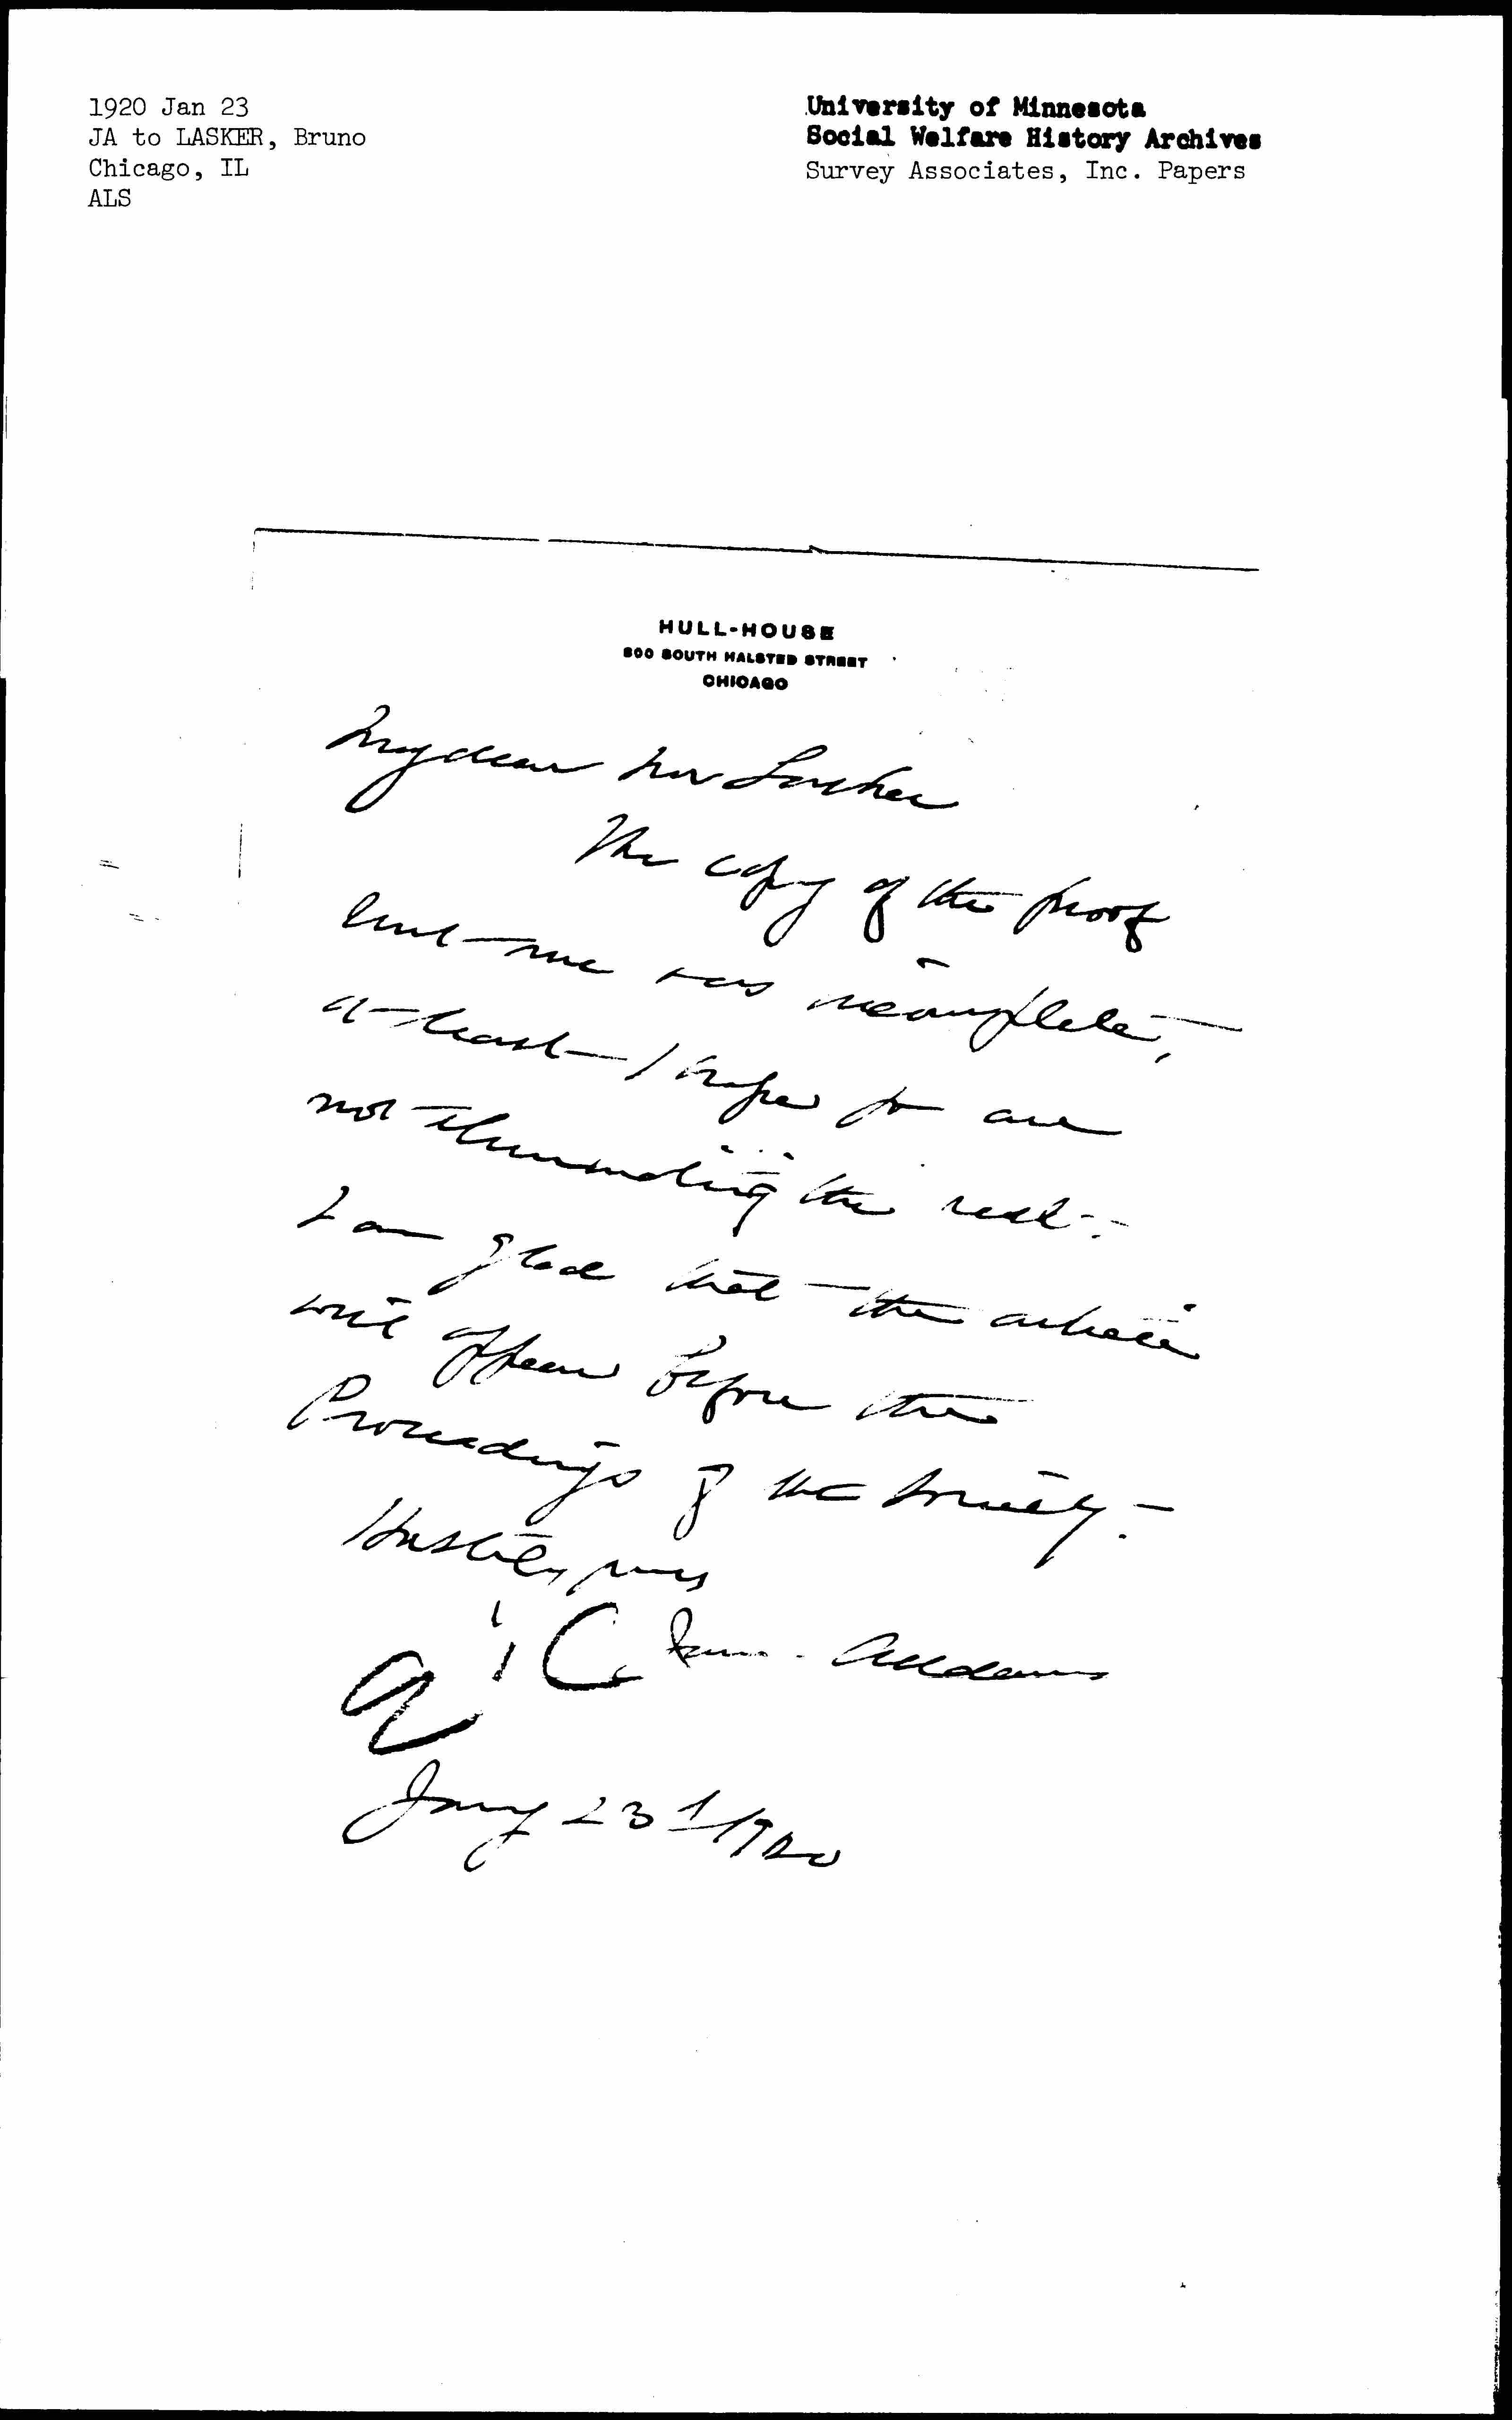 1920 Jan 23
JA to LASKER, Bruno
Chicago, IL
ALS
University of Minnesota
Social Welfare History Archives
Survey Associates, Inc. Papers
HULL-HOUSE
800 SOUTH HALSTED STREET
CHICAGO
My dear Mr Lasker
The copy of the proof
sent me was incomplete,
at least I hope you are
not eliminating the rest.
I am glad that the article
will appear before the
Proceedings of the Society.
Hastily yours
Jane Addams
Jany 23" 1920